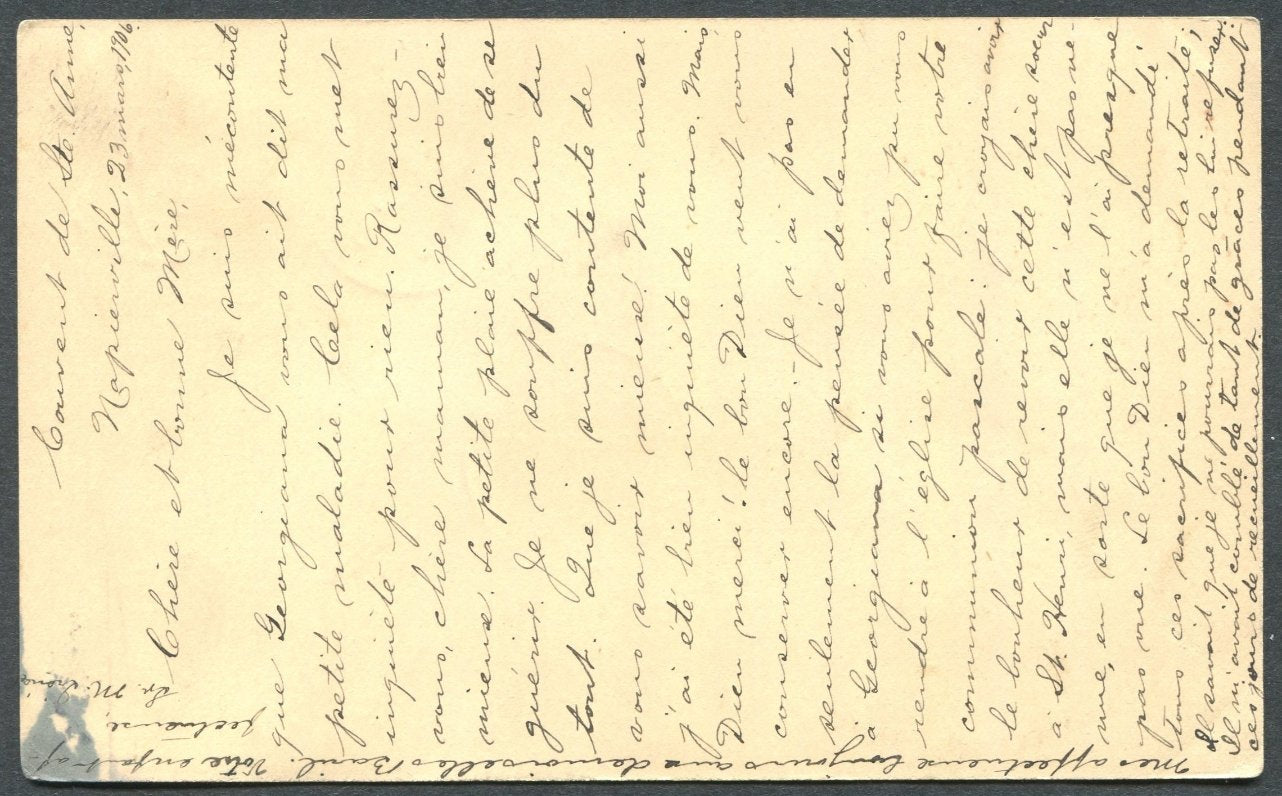 Couvent de Ste. Anne,
Napierville, 23 mars, 1906.
Chère et bonne Mère,
Je suis mécontente
que Georgiana vous ait dit ma
petite maladie. Cela vous met
inquiète pour rien. Rassurez-
vous, chère maman, je suis bien
mieux. La petite plaie achève de se
guérir. Je ne souffre plus du
tout. Que je suis contente de
vous savoir mieux! Moi aussi
j'ai été bien inquiète de vous. Mais,
Dieu merci! le bon Dieu veut vous
conserver encore. - Je n'ai pas eu
seulement la pensée de demander
à Georgiana si vous avez pu vous
rendre à l'église pour faire votre
communion pascale: je croyais avoir
le bonheur de revoir cette chère soeur
à St. Henri, mais elle n'est pas ve-
nue, en sorte que je ne l'ai presque
pas vue. Le bon Dieu m'a demandé
tous ces sacrifices après la retraite;
Il savait que je ne pourrais pas les lui refuser:
Il m'avait comblé de tant de grâces pendant
ces jours de recueillement.
Mes affectueuse bonjours aux demoiselles Baril. Votre enfant af-
fectueuse,
Sr. M.